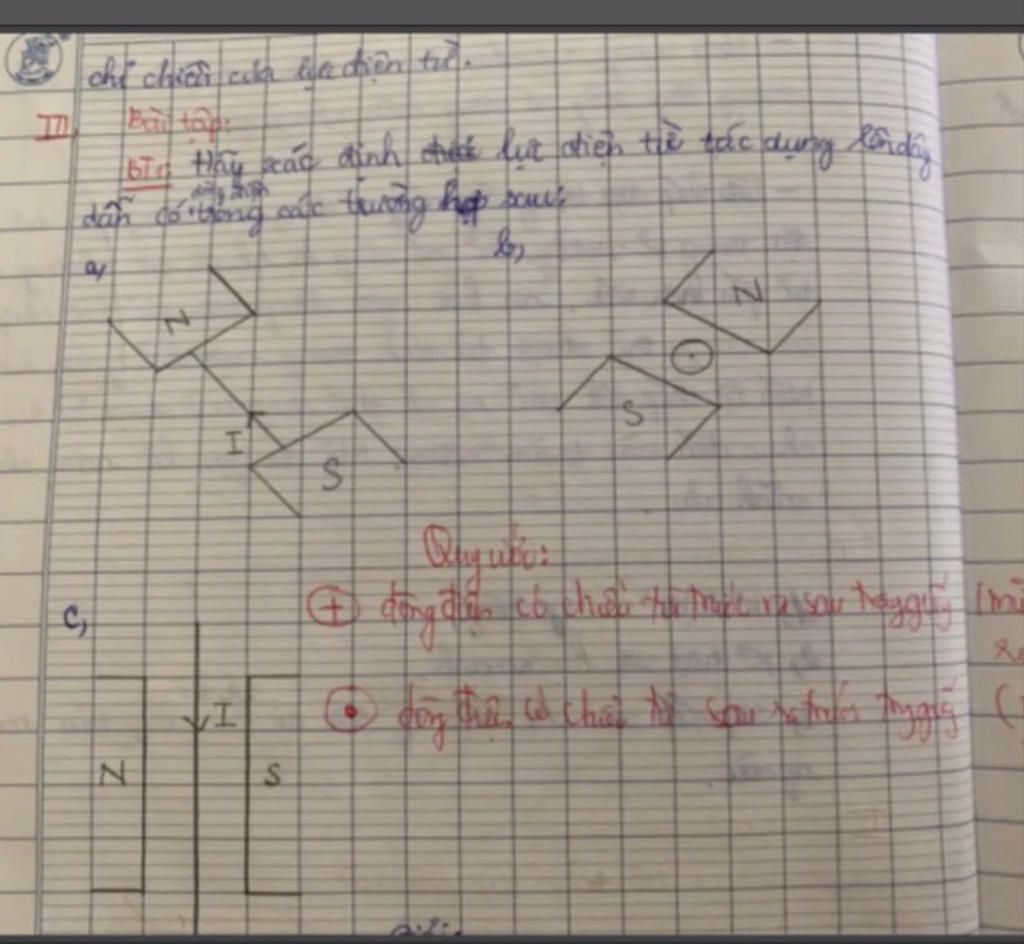 chỉ chiều của lực điện từ.
III, Bài tập:
BT1: Hãy xác định lực điện từ tác dụng lên dây
dẫn có dòng điện trong các trường hợp sau:
a, b,
N N
S
I S
Quy ước:
c, (+) dòng điện có chiều từ trước ra sau trang giấy
I (•) dòng điện có chiều từ sau ra trước trang giấy (
N S